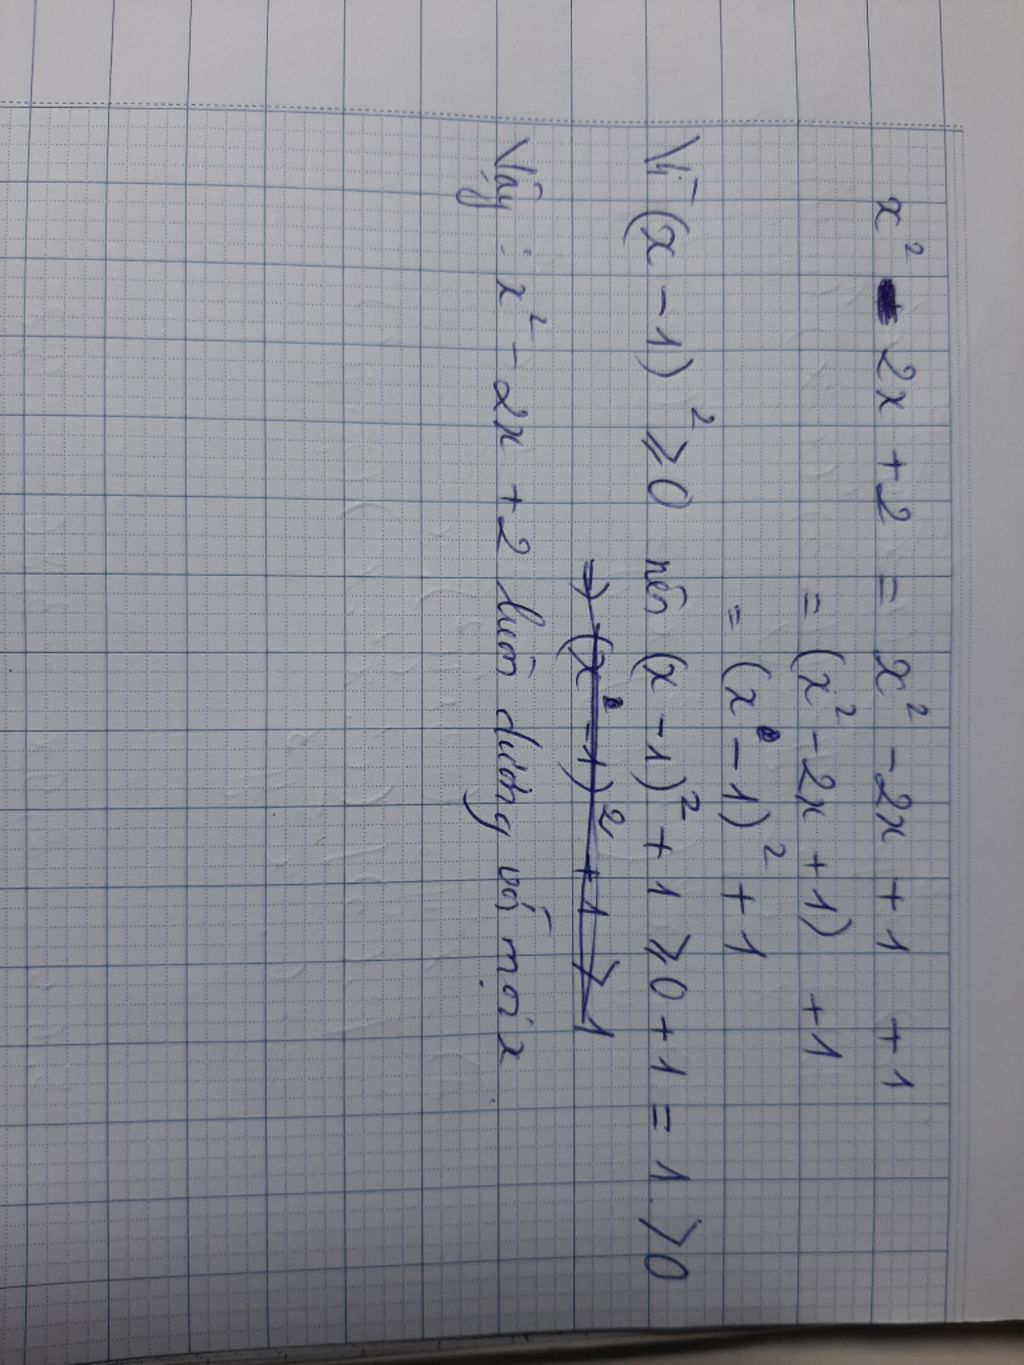 x² - 2x + 2 = x² - 2x + 1 + 1
= (x² - 2x + 1) + 1
= (x - 1)² + 1
Vì (x - 1)² ⩾ 0 nên (x - 1)² + 1 ⩾ 0 + 1 = 1 > 0
⇒ (x - 1)² + 1 > 1
Vậy : x² - 2x + 2 luôn dương với mọi x